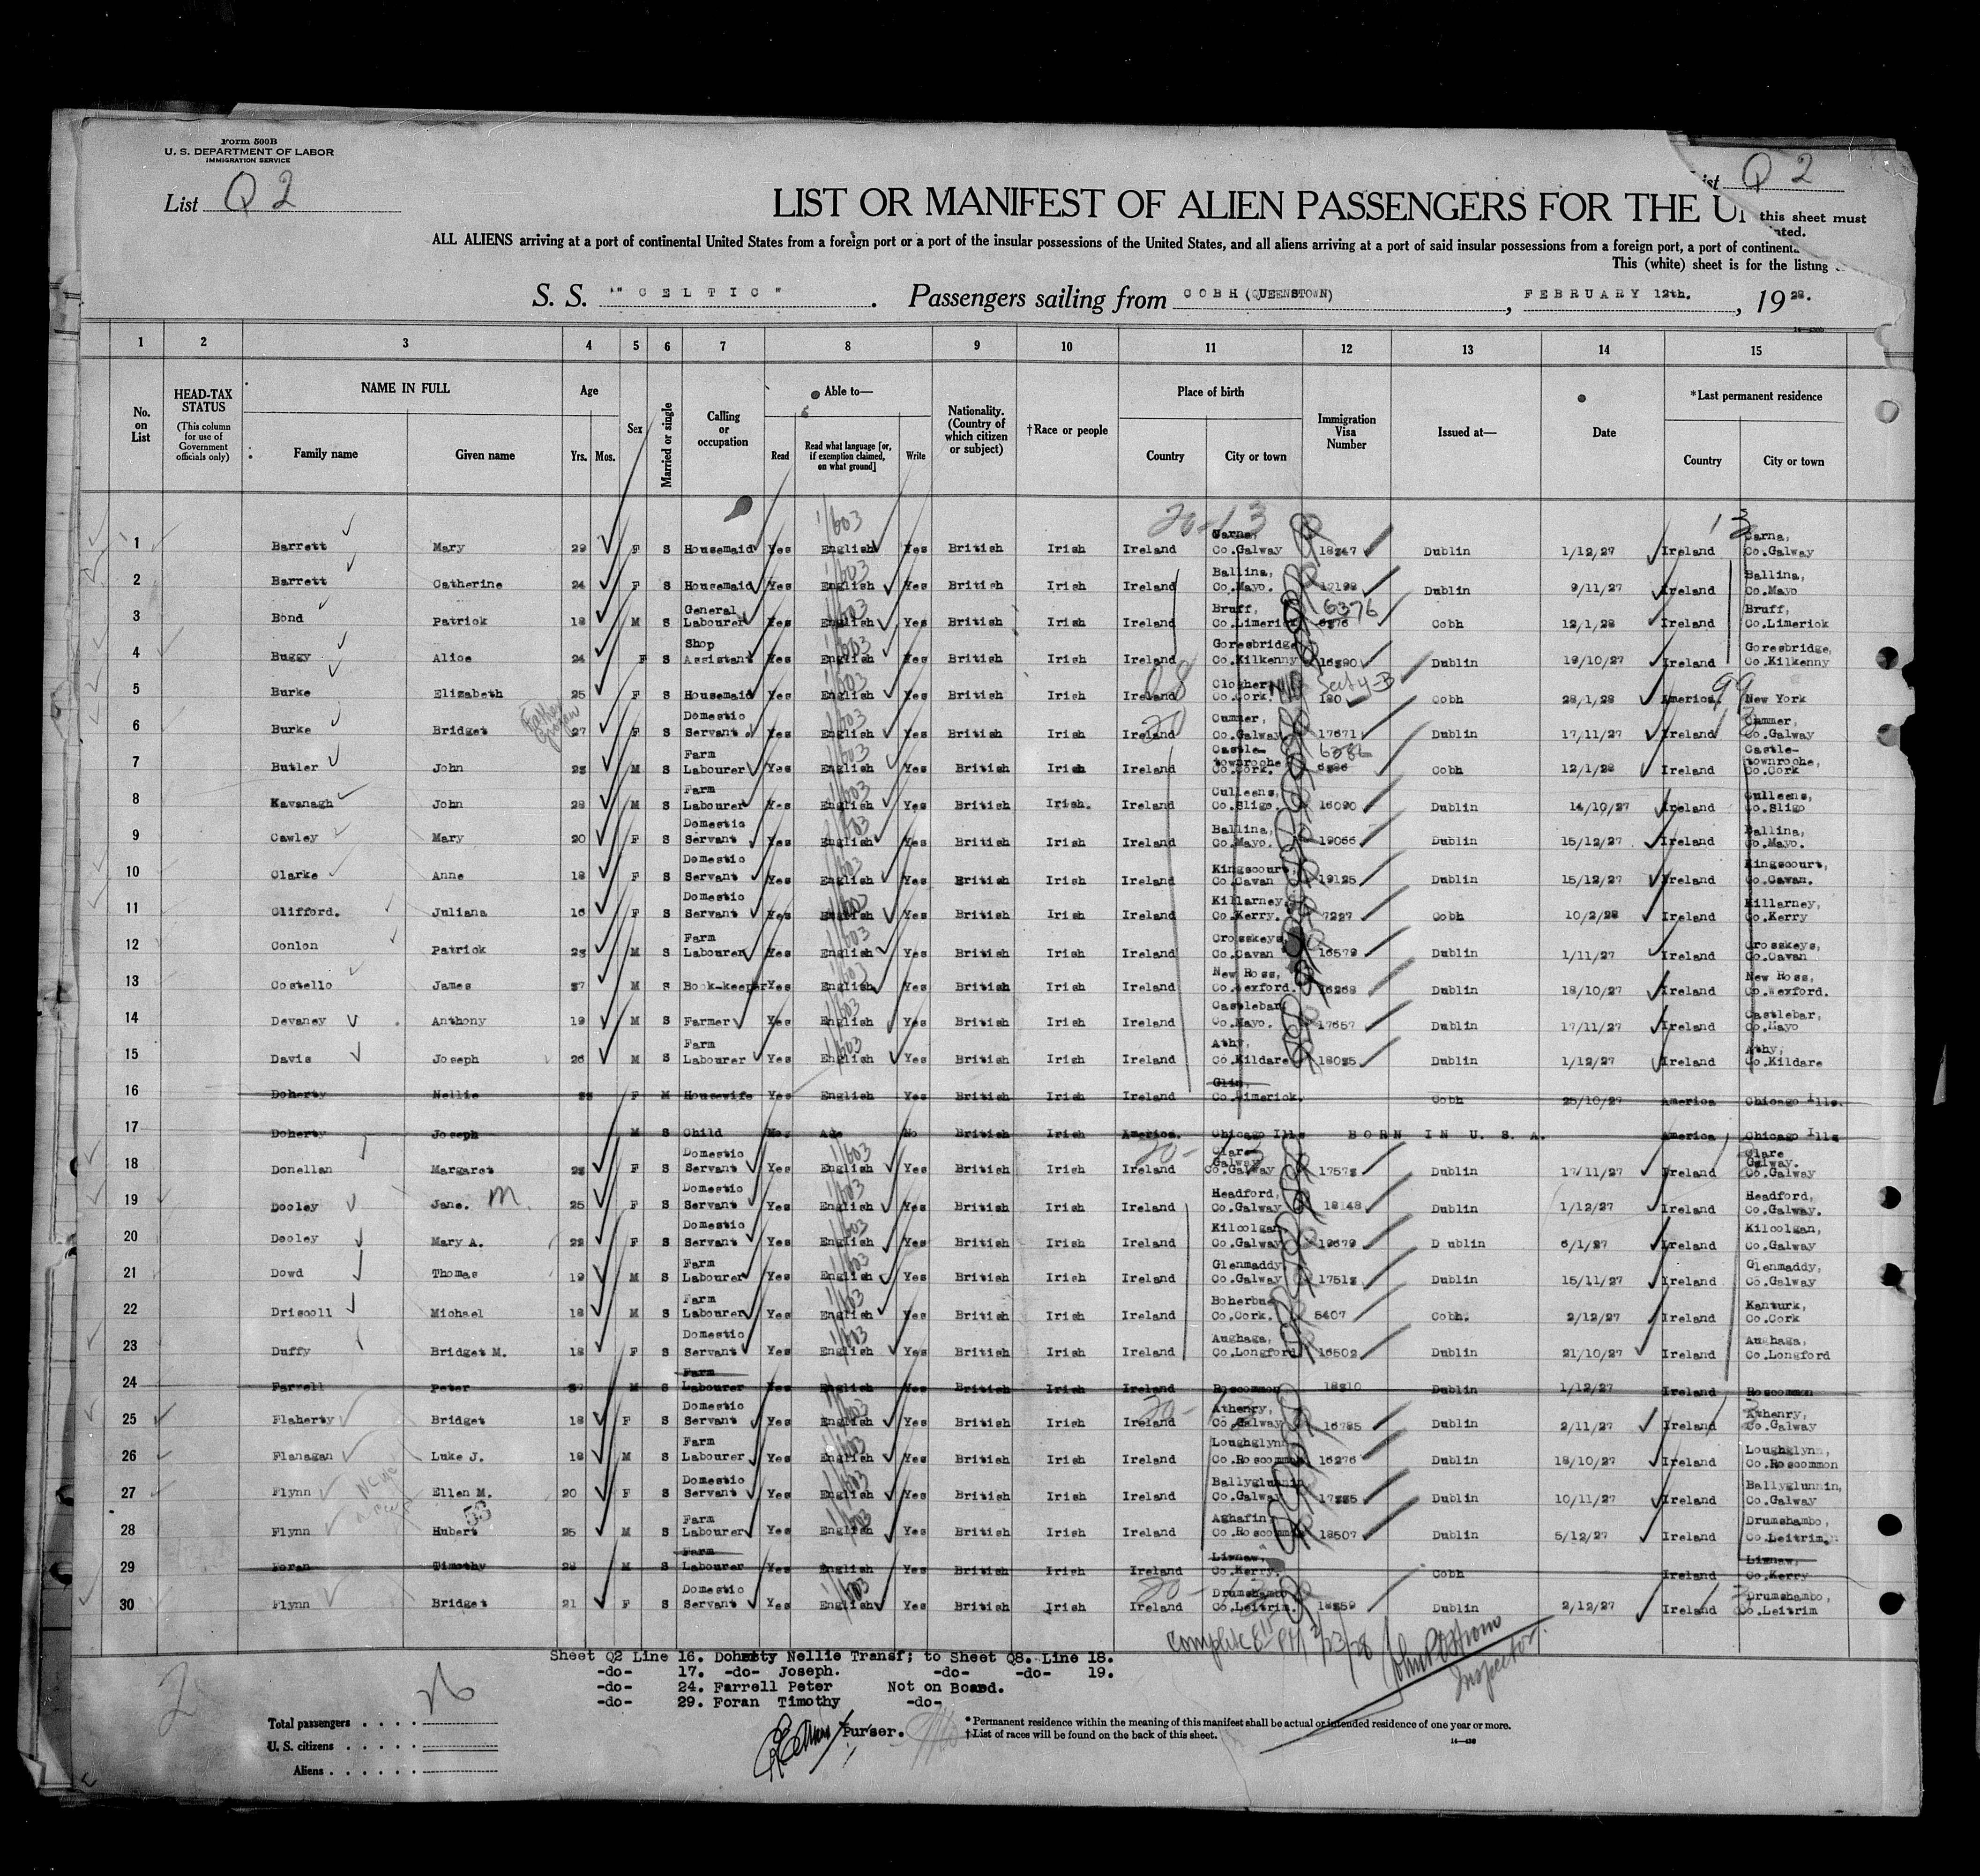 Form 500B
U. S. DEPARTMENT OF LABOR
IMMIGRATION SERVICE
List Q 2
ist Q 2
LIST OR MANIFEST OF ALIEN PASSENGERS FOR THE U
this sheet must
nted.
ALL ALIENS arriving at a port of continental United States from a foreign port or a port of the insular possessions of the United States, and all aliens arriving at a port of said insular possessions from a foreign port, a port of continent
This (white) sheet is for the listing
S. S. "CELTIC". Passengers sailing from COBH (QUEENSTOWN), FEBRUARY 12th., 1928.
1 2 3 4 5 6 7 8 9 10 11 12 13 14 15
No. on List
HEAD-TAX STATUS (This column for use of Government officials only)
NAME IN FULL Family name Given name
Age Yrs. Mos.
Sex
Married or single
Calling or occupation
Able to— Read Read what language [or, if exemption claimed, on what ground] Write
Nationality. (Country of which citizen or subject)
†Race or people
Place of birth Country City or town
Immigration Visa Number
Issued at—
Date
*Last permanent residence Country City or town
1 Barrett Mary 29 F S Housemaid Yes English Yes British Irish Ireland Carna, Co.Galway 18247 Dublin 1/12/27 Ireland Carna, Co.Galway
2 Barrett Catherine 24 F S Housemaid Yes English Yes British Irish Ireland Ballina, Co.Mayo. 17198 Dublin 9/11/27 Ireland Ballina, Co.Mayo
3 Bond Patrick 18 M S General Labourer Yes English Yes British Irish Ireland Bruff, Co.Limerick 6376 Cobh 12/1/28 Ireland Bruff, Co.Limerick
4 Buggy Alice 24 F S Shop Assistant Yes English Yes British Irish Ireland Goresbridge, Co.Kilkenny 16390 Dublin 19/10/27 Ireland Goresbridge, Co.Kilkenny
5 Burke Elizabeth 25 F S Housemaid Yes English Yes British Irish Ireland Clogher, Co.Cork. 180 Sect 4-B Cobh 28/1/28 America. New York
6 Burke Bridget 27 F S Domestic Servant. Yes English Yes British Irish Ireland Cummer, Co.Galway 17671 Dublin 17/11/27 Ireland Cummer, Co.Galway
7 Butler John 23 M S Farm Labourer Yes English Yes British Irish Ireland Castle-townroche, Co.Cork. 6386 Cobh 12/1/28 Ireland Castle-townroche, Co.Cork
8 Kavanagh John 28 M S Farm Labourer Yes English Yes British Irish. Ireland Culleens, Co.Sligo. 16090 Dublin 14/10/27 Ireland Culleens, Co.Sligo
9 Cawley Mary 20 F S Domestic Servant Yes English Yes British Irish Ireland Ballina, Co.Mayo. 19066 Dublin 15/12/27 Ireland Ballina, Co.Mayo.
10 Clarke Anne 18 F S Domestic Servant Yes English Yes British Irish Ireland Kingscourt, Co.Cavan 19125 Dublin 15/12/27 Ireland Kingscourt, Co.Cavan.
11 Clifford. Juliana 16 F S Domestic Servant Yes English Yes British Irish Ireland Killarney, Co.Kerry. 7227 Cobh 10/2/28 Ireland Killarney, Co.Kerry
12 Conlon Patrick 23 M S Farm Labourer Yes English Yes British Irish Ireland Crosskeys, Co.Cavan 16579 Dublin 1/11/27 Ireland Crosskeys, Co.Cavan
13 Costello James 37 M S Book-keeper Yes English Yes British Irish Ireland New Ross, Co.Wexford. 16268 Dublin 18/10/27 Ireland New Ross, Co.Wexford.
14 Devaney Anthony 19 M S Farmer Yes English Yes British Irish Ireland Castlebar, Co.Mayo. 17657 Dublin 17/11/27 Ireland Castlebar, Co.Mayo
15 Davis Joseph 26 M S Farm Labourer Yes English Yes British Irish Ireland Athy, Co.Kildare 18035 Dublin 1/12/27 Ireland Athy, Co.Kildare
16 Doherty Nellie 33 F M Housewife Yes English Yes British Irish Ireland Glin, Co.Limerick. Cobh 25/10/27 America Chicago Ills.
17 Doherty Joseph M S Child No. Age No British Irish America. Chicago Ills BORN IN U.S.A. America Chicago Ills
18 Donellan Margaret 23 F S Domestic Servant Yes English Yes British Irish Ireland Clare Galway Co.Galway 17573 Dublin 17/11/27 Ireland Clare Galway. Co.Galway
19 Dooley Jane. M. 25 F S Domestic Servant Yes English Yes British Irish Ireland Headford, Co.Galway 18148 Dublin 1/12/27 Ireland Headford, Co.Galway.
20 Dooley Mary A. 22 F S Domestic Servant Yes English Yes British Irish Ireland Kilcolgan, Co.Galway 19679 D ublin 6/1/27 Ireland Kilcolgan, Co.Galway
21 Dowd Thomas 19 M S Farm Labourer Yes English Yes British Irish Ireland Glenmaddy, Co.Galway 17513 Dublin 15/11/27 Ireland Glenmaddy, Co.Galway
22 Driscoll Michael 18 M S Farm Labourer Yes English Yes British Irish Ireland Boherbue, Co.Cork. 5407 Cobh. 2/12/27 Ireland Kanturk, Co.Cork
23 Duffy Bridget M. 18 F S Domestic Servant Yes English Yes British Irish Ireland Aughaga, Co.Longford 16502 Dublin 21/10/27 Ireland Aughaga, Co.Longford
24 Farrell Peter 37 M S Farm Labourer Yes English Yes British Irish Ireland Roscommon 18310 Dublin 1/12/27 Ireland Roscommon
25 Flaherty Bridget 18 F S Domestic Servant Yes English Yes British Irish Ireland Athenry, Co.Galway 16785 Dublin 2/11/27 Ireland Athenry, Co.Galway
26 Flanagan Luke J. 18 M S Farm Labourer Yes English Yes British Irish Ireland Loughglynn, Co.Roscommon 16276 Dublin 18/10/27 Ireland Loughglynn, Co.Roscommon
27 Flynn Ellen M. 20 F S Domestic Servant Yes English Yes British Irish Ireland Ballyglunnin, Co.Galway 17335 Dublin 10/11/27 Ireland Ballyglunnin, Co.Galway
28 Flynn Hubert 25 M S Farm Labourer Yes English Yes British Irish Ireland Aghafin, Co.Roscommon 18507 Dublin 5/12/27 Ireland Drumshambo, Co.Leitrim.
29 Foran Timothy 28 M S Farm Labourer Yes English Yes British Irish Ireland Lisnaw, Co.Kerry. Cobh Ireland Lisnaw, Co.Kerry
30 Flynn Bridget 21 F S Domestic Servant Yes English Yes British Irish Ireland Drumshambo, Co.Leitrim. 18359 Dublin 2/12/27 Ireland Drumshambo, Co.Leitrim
Sheet Q2 Line 16. Doherty Nellie Transf; to Sheet Q8. Line 18.
-do- 17. -do- Joseph. -do- -do- 19.
-do- 24. Farrell Peter Not on Board.
-do- 29. Foran Timothy -do-
2/23/28
Inspector.
Purser.
Total passengers
U. S. citizens
Aliens
* Permanent residence within the meaning of this manifest shall be actual or intended residence of one year or more.
† List of races will be found on the back of this sheet.